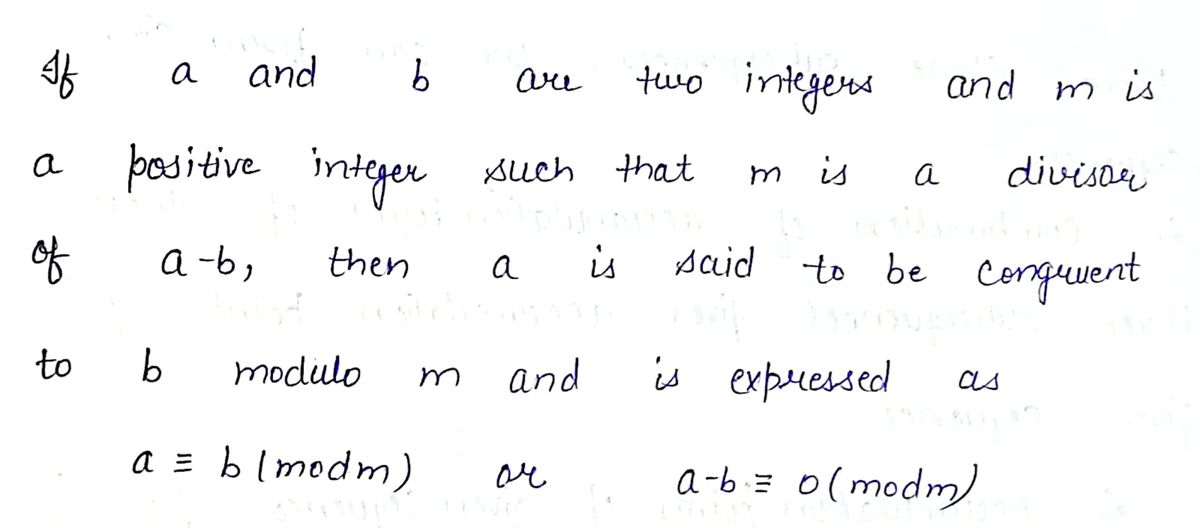 If a and b are two integers and m is
a positive integer such that m is a divisor
of a-b, then a is said to be congruent
to b modulo m and is expressed as
a ≡ b (modm) or a-b ≡ 0 (modm)